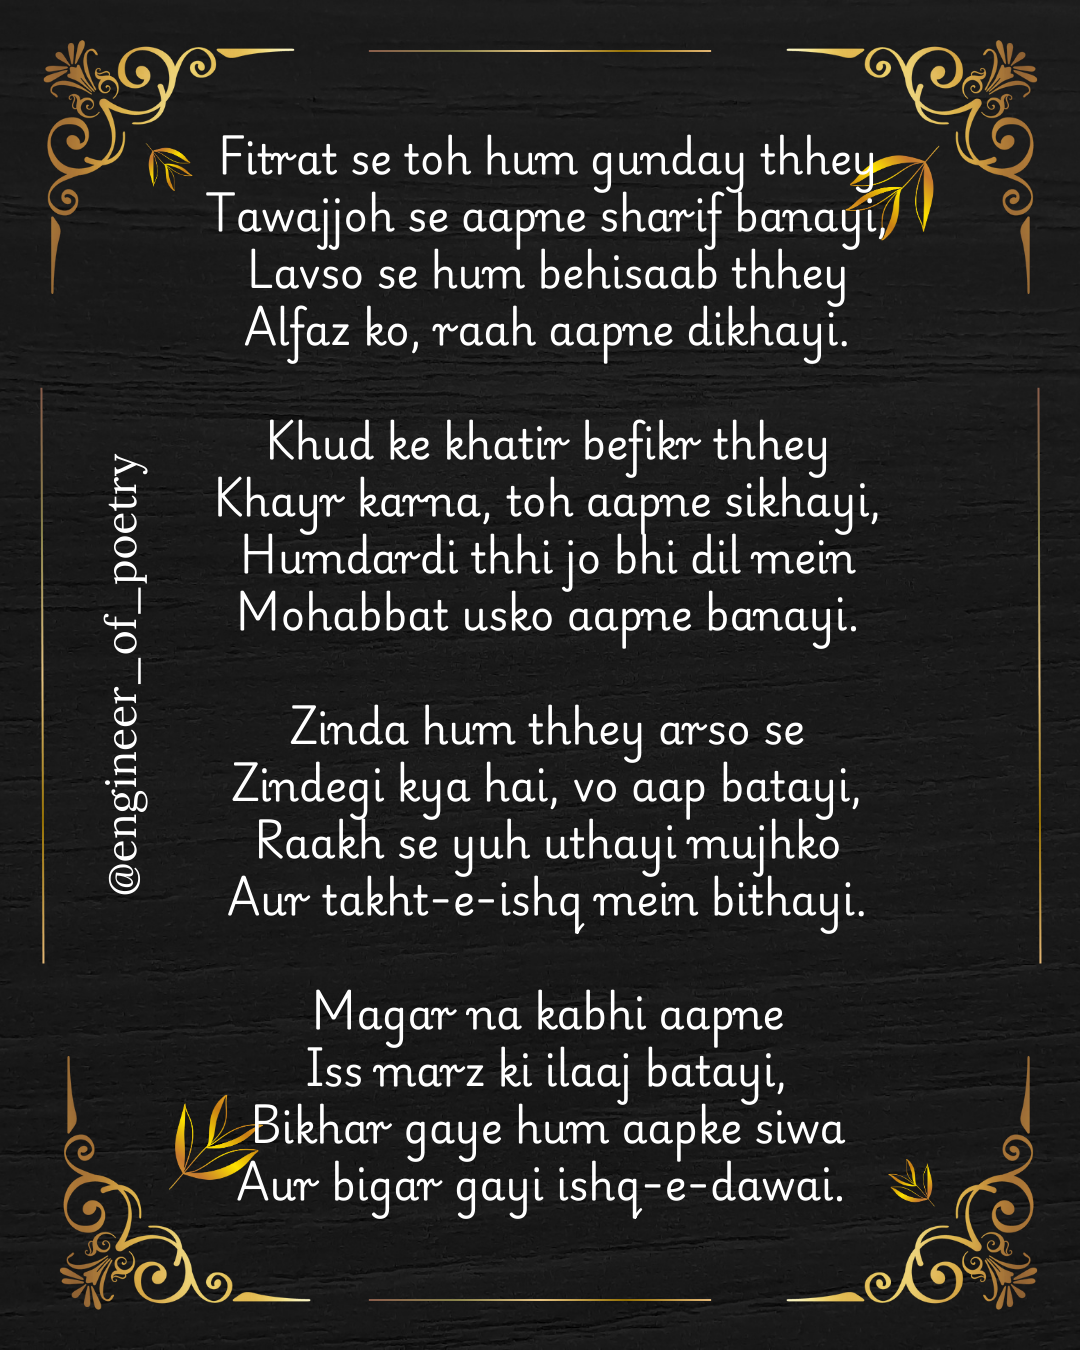 Fitrat se toh hum gunday thhey
Tawajjoh se aapne sharif banayi,
Lavso se hum behisaab thhey
Alfaz ko, raah aapne dikhayi.
Khud ke khatir befikr thhey
Khayr karna, toh aapne sikhayi,
Humdardi thhi jo bhi dil mein
Mohabbat usko aapne banayi.
Zinda hum thhey arso se
Zindegi kya hai, vo aap batayi,
Raakh se yuh uthayi mujhko
Aur takht-e-ishq mein bithayi.
Magar na kabhi aapne
Iss marz ki ilaaj batayi,
Bikhar gaye hum aapke siwa
Aur bigar gayi ishq-e-dawai.
@engineer_of_poetry